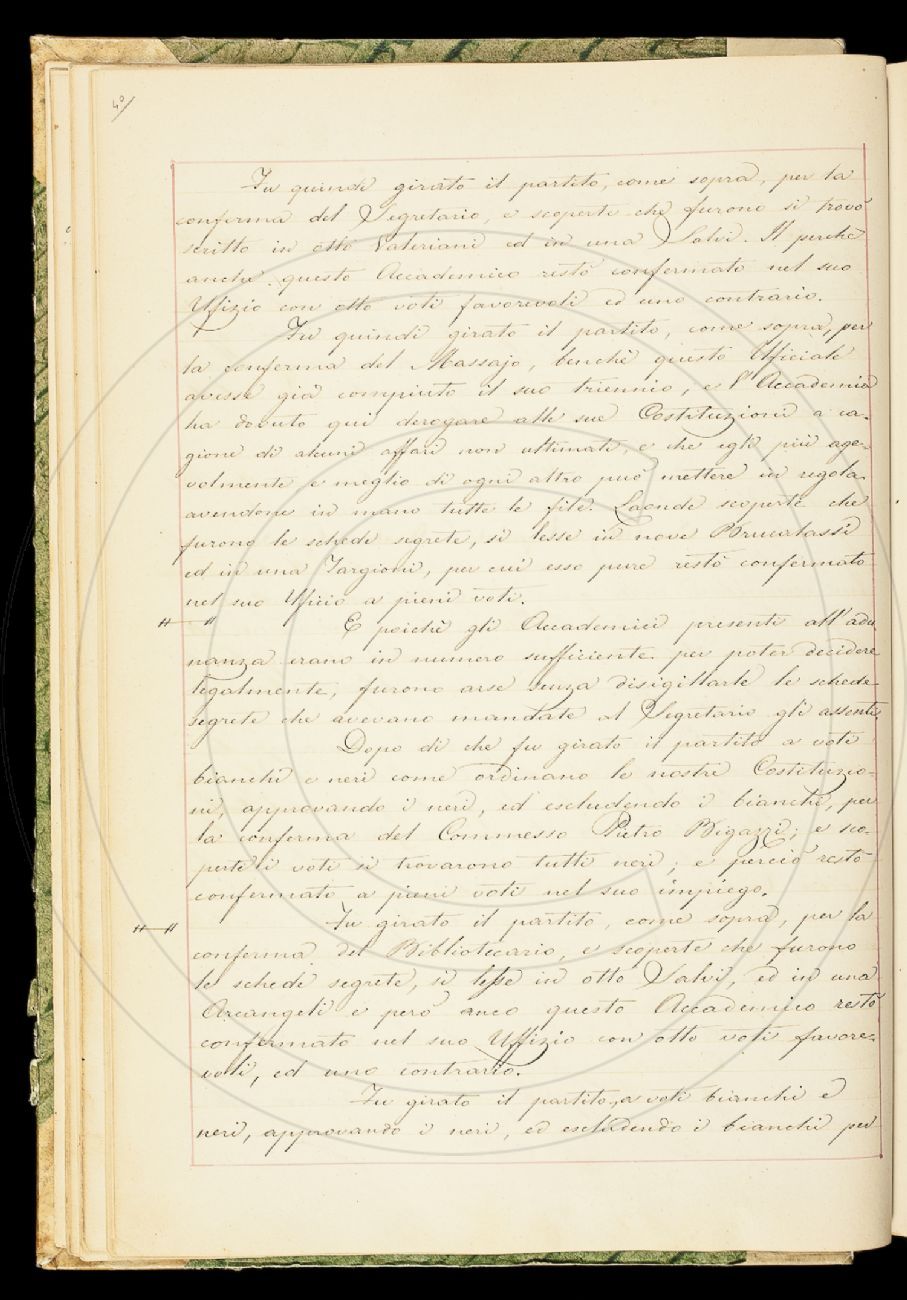 40
Fu quindi girato il partito, come sopra, per la
conferma del Segretario, e scoperte che furono si trovò
scritto in otto Valeriani ed in una Salvi. Il perchè
anche questo Accademico restò confermato nel suo
Ufizio con otto voti favorevoli ed uno contrario.
Fu quindi girato il partito, come sopra, per
la conferma del Massajo, benchè questo Ufficiale
avesse già compiuto il suo triennio, e l'Accademia
ha dovuto qui derogare alle sue Costituzioni a ca-
gione di alcuni affari non ultimati, e che egli più age-
volmente e meglio di ogni altro può mettere in regola
avendone in mano tutte le fila. Laonde scoperte che
furono le schede segrete, si lesse in nove Brucalassi
ed in una Targioni, per cui esso pure restò confermato
nel suo Uficio a pieni voti.
E poichè gli Accademici presenti all'adu
nanza erano in numero sufficiente per poter decidere
legalmente, furono arse senza disigillarle le schede
segrete che avevano mandate al Segretario gli assenti.
Dopo di che fu girato il partito a voti
bianchi e neri come ordinano le nostre Costituzio-
ni, approvando i neri, ed escludendo i bianchi, per
la conferma del Commesso Pietro Bigazzi; e sco-
perti li voti si trovarono tutti neri; e perciò restò
confermato a pieni voti nel suo impiego.
Fu girato il partito, come sopra, per la
conferma del Bibliotecario, e scoperte che furono
le schede segrete, si lesse in otto Salvi, ed in una
Arcangeli e però anco questo Accademico restò
confermato nel suo Uffizio con otto voti favore-
voli, ed uno contrario.
Fu girato il partito, a voti bianchi e
neri, approvando i neri, ed escludendo i bianchi per